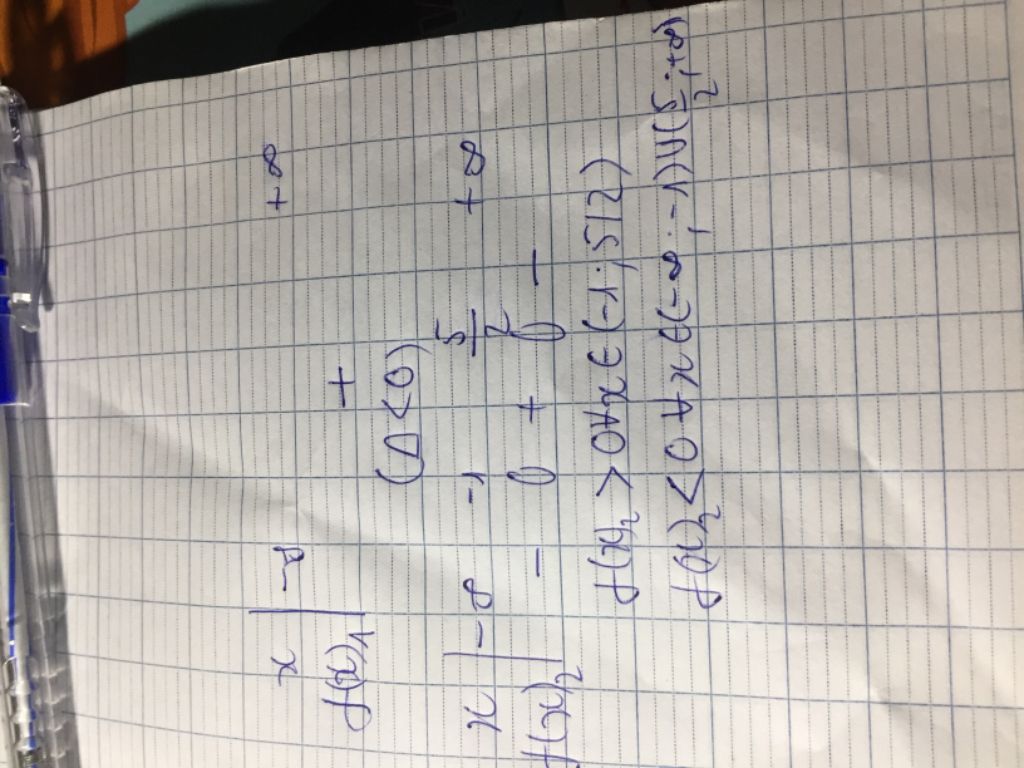 x | -∞ +∞
f(x)₁ | +
(Δ < 0)
x | -∞ -1 5/2 +∞
f(x)₂ | - 0 + 0 -
f(x)₂ > 0 ∀x ∈ (-1; 5/2)
f(x)₂ < 0 ∀x ∈ (-∞; -1) ∪ (5/2; +∞)